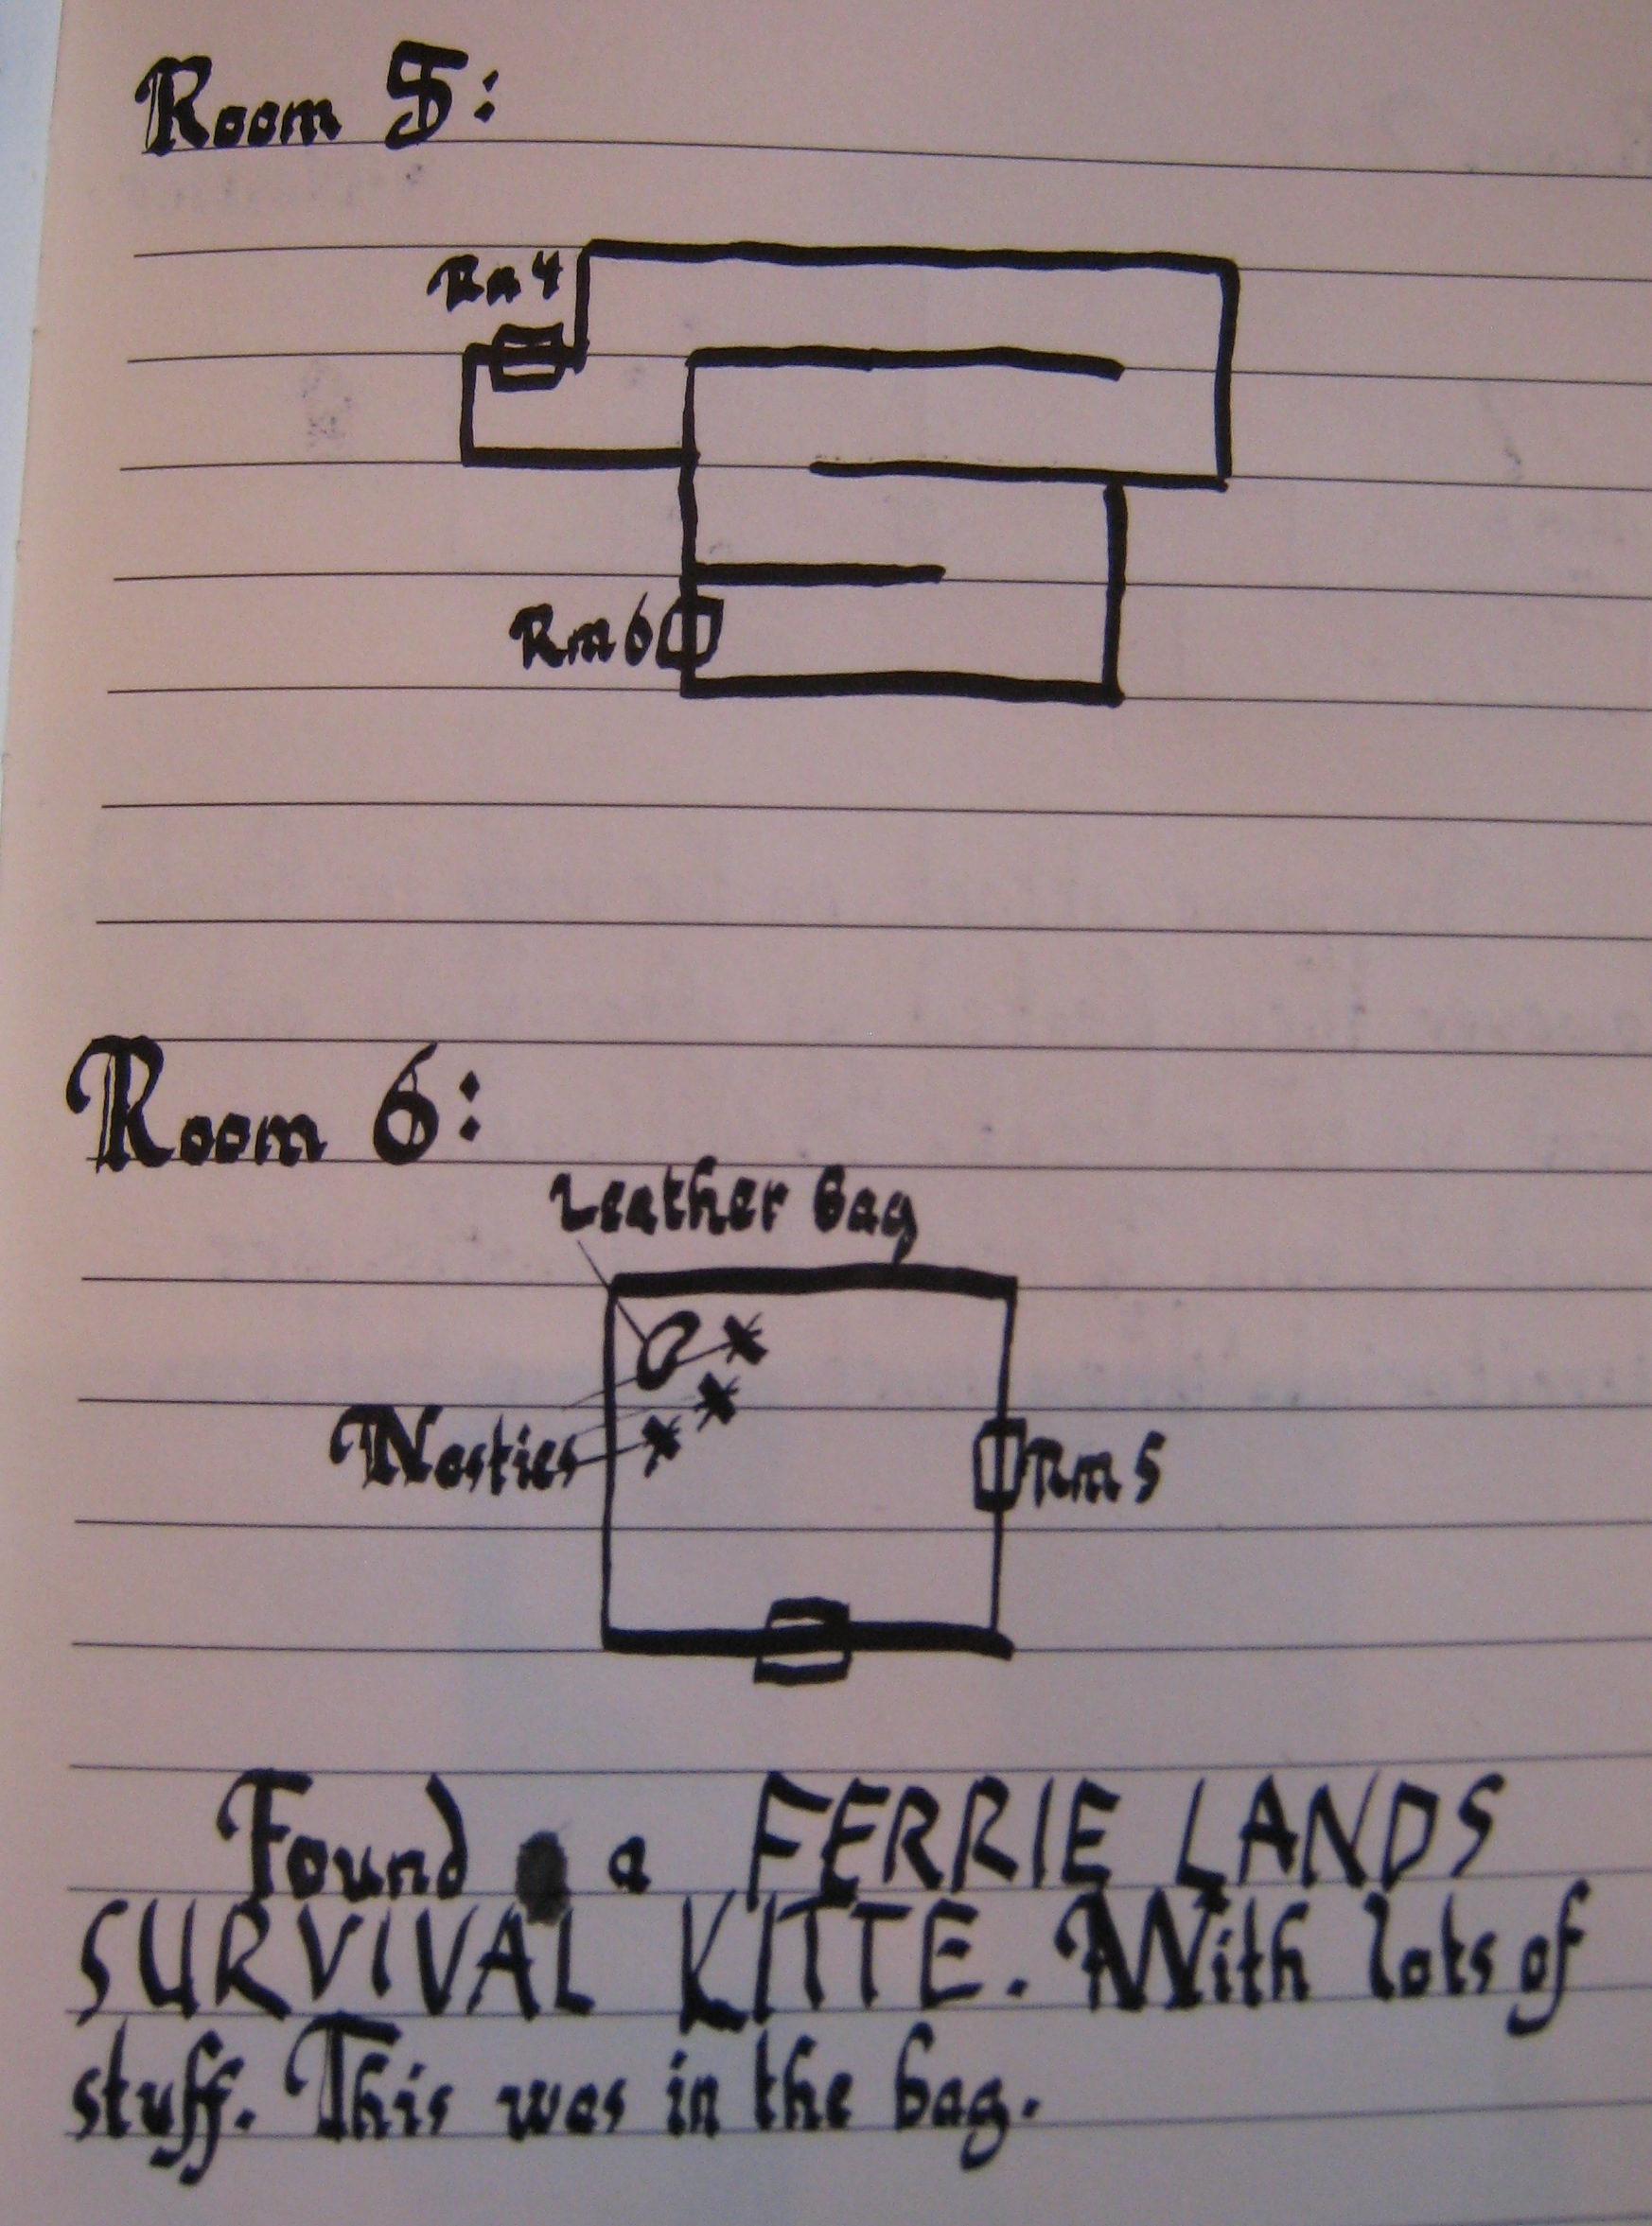 Room 5:
Rm 4
Rm 6
Room 6:
Leather Bag
Nasties
Rm 5
Found a FERRIE LANDS
SURVIVAL KITTE. With lots of
stuff. This was in the bag.